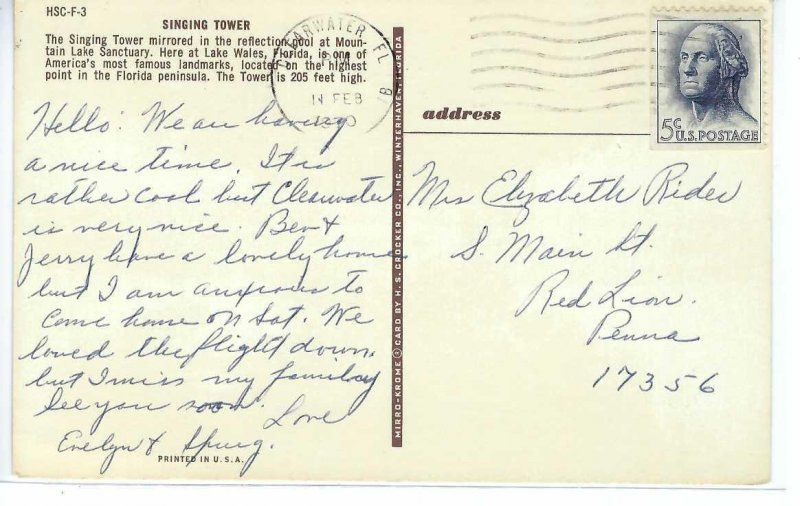 HSC-F-3
SINGING TOWER
The Singing Tower mirrored in the reflection pool at Moun-
tain Lake Sanctuary. Here at Lake Wales, Florida, is one of
America's most famous landmarks, located on the highest
point in the Florida peninsula. The Tower is 205 feet high.
Hello: We are having
a nice time. It is
rather cool but Clearwater
is very nice. Bev &
Jerry have a lovely home
but I am anxious to
come home on Sat. We
loved the flight down,
but I miss my family
See you soon.
Love
Evelyn & Spurg.
PRINTED IN U.S.A.
MIRRO-KROME ® CARD BY H. S. CROCKER CO., INC., WINTERHAVEN, FLORIDA
CLEARWATER, FL
PM
14 FEB
1970
5¢
U.S. POSTAGE
address
Mrs Elizabeth Rider
S. Main St.
Red Lion.
Penna
17356